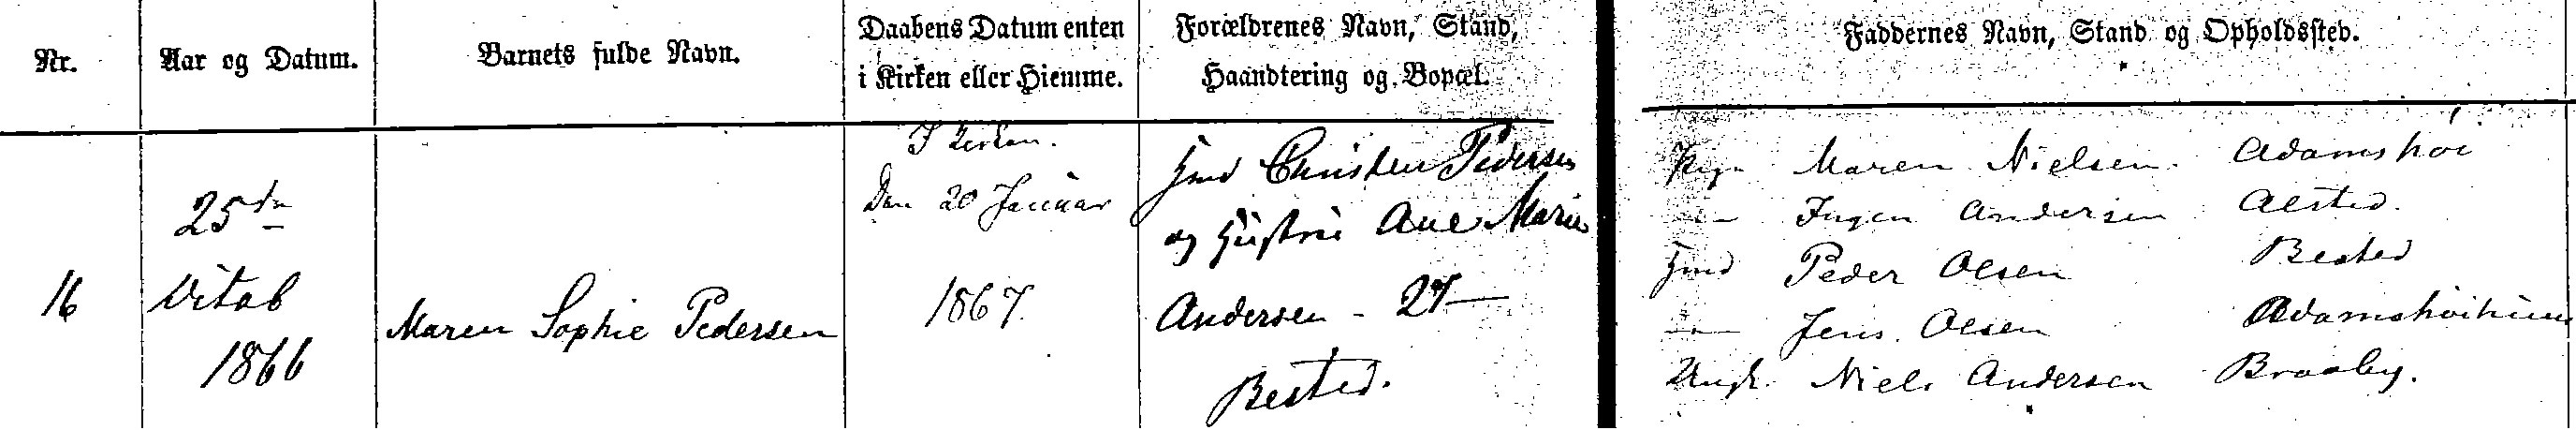 Nr.
Aar og Datum.
Barnets fulde Navn.
Daabens Datum enten
i Kirken eller Hiemme.
Forældrenes Navn, Stand,
Haandtering og Bopæl.
Faddernes Navn, Stand og Opholdssted.
16
25de
Octob
1866
Maren Sophie Pedersen
I Kirken.
Den 20 Januar
1867.
Hmd Christen Pedersen
og Hustrue Ane Marie
Andersen - 27
Bested.
Pige Maren Nielsen. Adamshøi
— Inger Andersen Alsted.
Hmd Peder Olsen Bested
— Jens Olsen Adamshøihuus
Ungk. Niels Andersen Braaby.